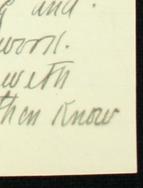 and.
work.
with
then know